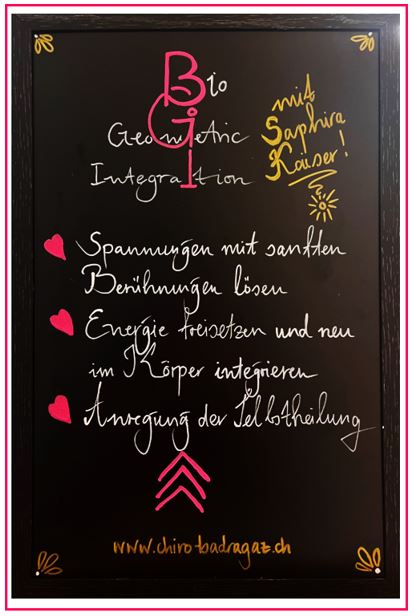 Bio
Geometric
Integration
mit
Saphira
Kaiser!
Spannungen mit sanften
Berührungen lösen
Energie freisetzen und neu
im Körper integrieren
Anregung der Selbstheilung
www.chiro-badragaz.ch